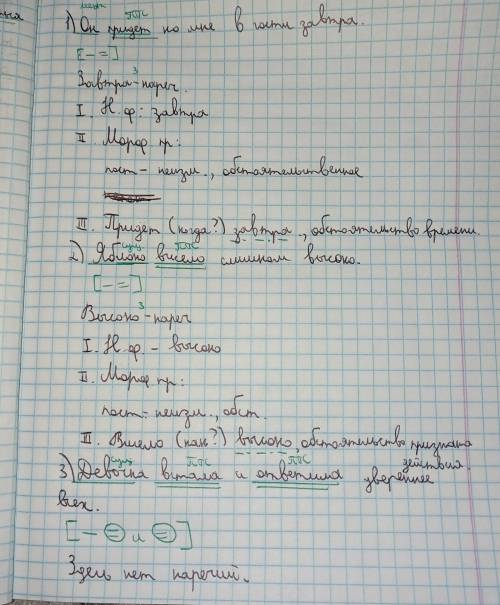 мест ПГС
1) Он придет ко мне в гости завтра.
[– =]
Завтра³-нареч.
I. Н.ф: завтра
II Морф пр:
пост – неизм., обстоятельственное
III. Придет (когда?) завтра, обстоятельство времени.
сущ ПГС
2) Яблоко висело слишком высоко.
[– =]
Высоко³-нареч
I. Н.ф. – высоко
II. Морф пр:
пост.- неизм., обст.
III. Висело (как?) высоко, обстоятельство признака действия.
сущ ПГС ПГС
3) Девочка встала и ответила увереннее
всех.
[– = и =]
Здесь нет наречий.